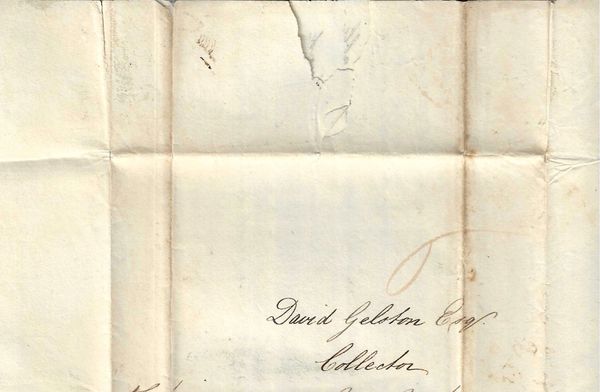 David Gelston Esqr.
Collector